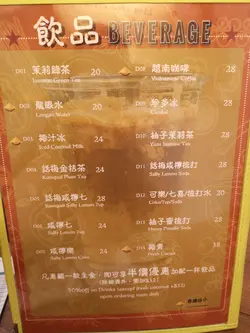 飲品 BEVERAGE
D01 茉莉綠茶 20
Jasmine Green Tea
D02 龍眼冰 24
Longan Water
D03 椰汁冰 24
Iced Coconut Milk
D04 話梅金桔茶 24
Kumquat Plum Tea
D05 話梅咸檸七 28
D06 咸檸七 28
Salty Lemon
D07 咸檸樂 28
Salty Lemon Coke
D08 越南咖啡 28
Vietnamese Coffee
28
D10 柚子茉莉茶 28
D11 話梅咸檸梳打 28
Salty Lemon Soda
D12 可樂/七喜/梳打水 20
Coke/7up/Soda
D13 柚子蜜梳打 28
Honey Pomelo Soda
28
凡惠顧一款主食，即可享半價優惠加配一杯飲品
50% off on Drinks
upon ordering main dish